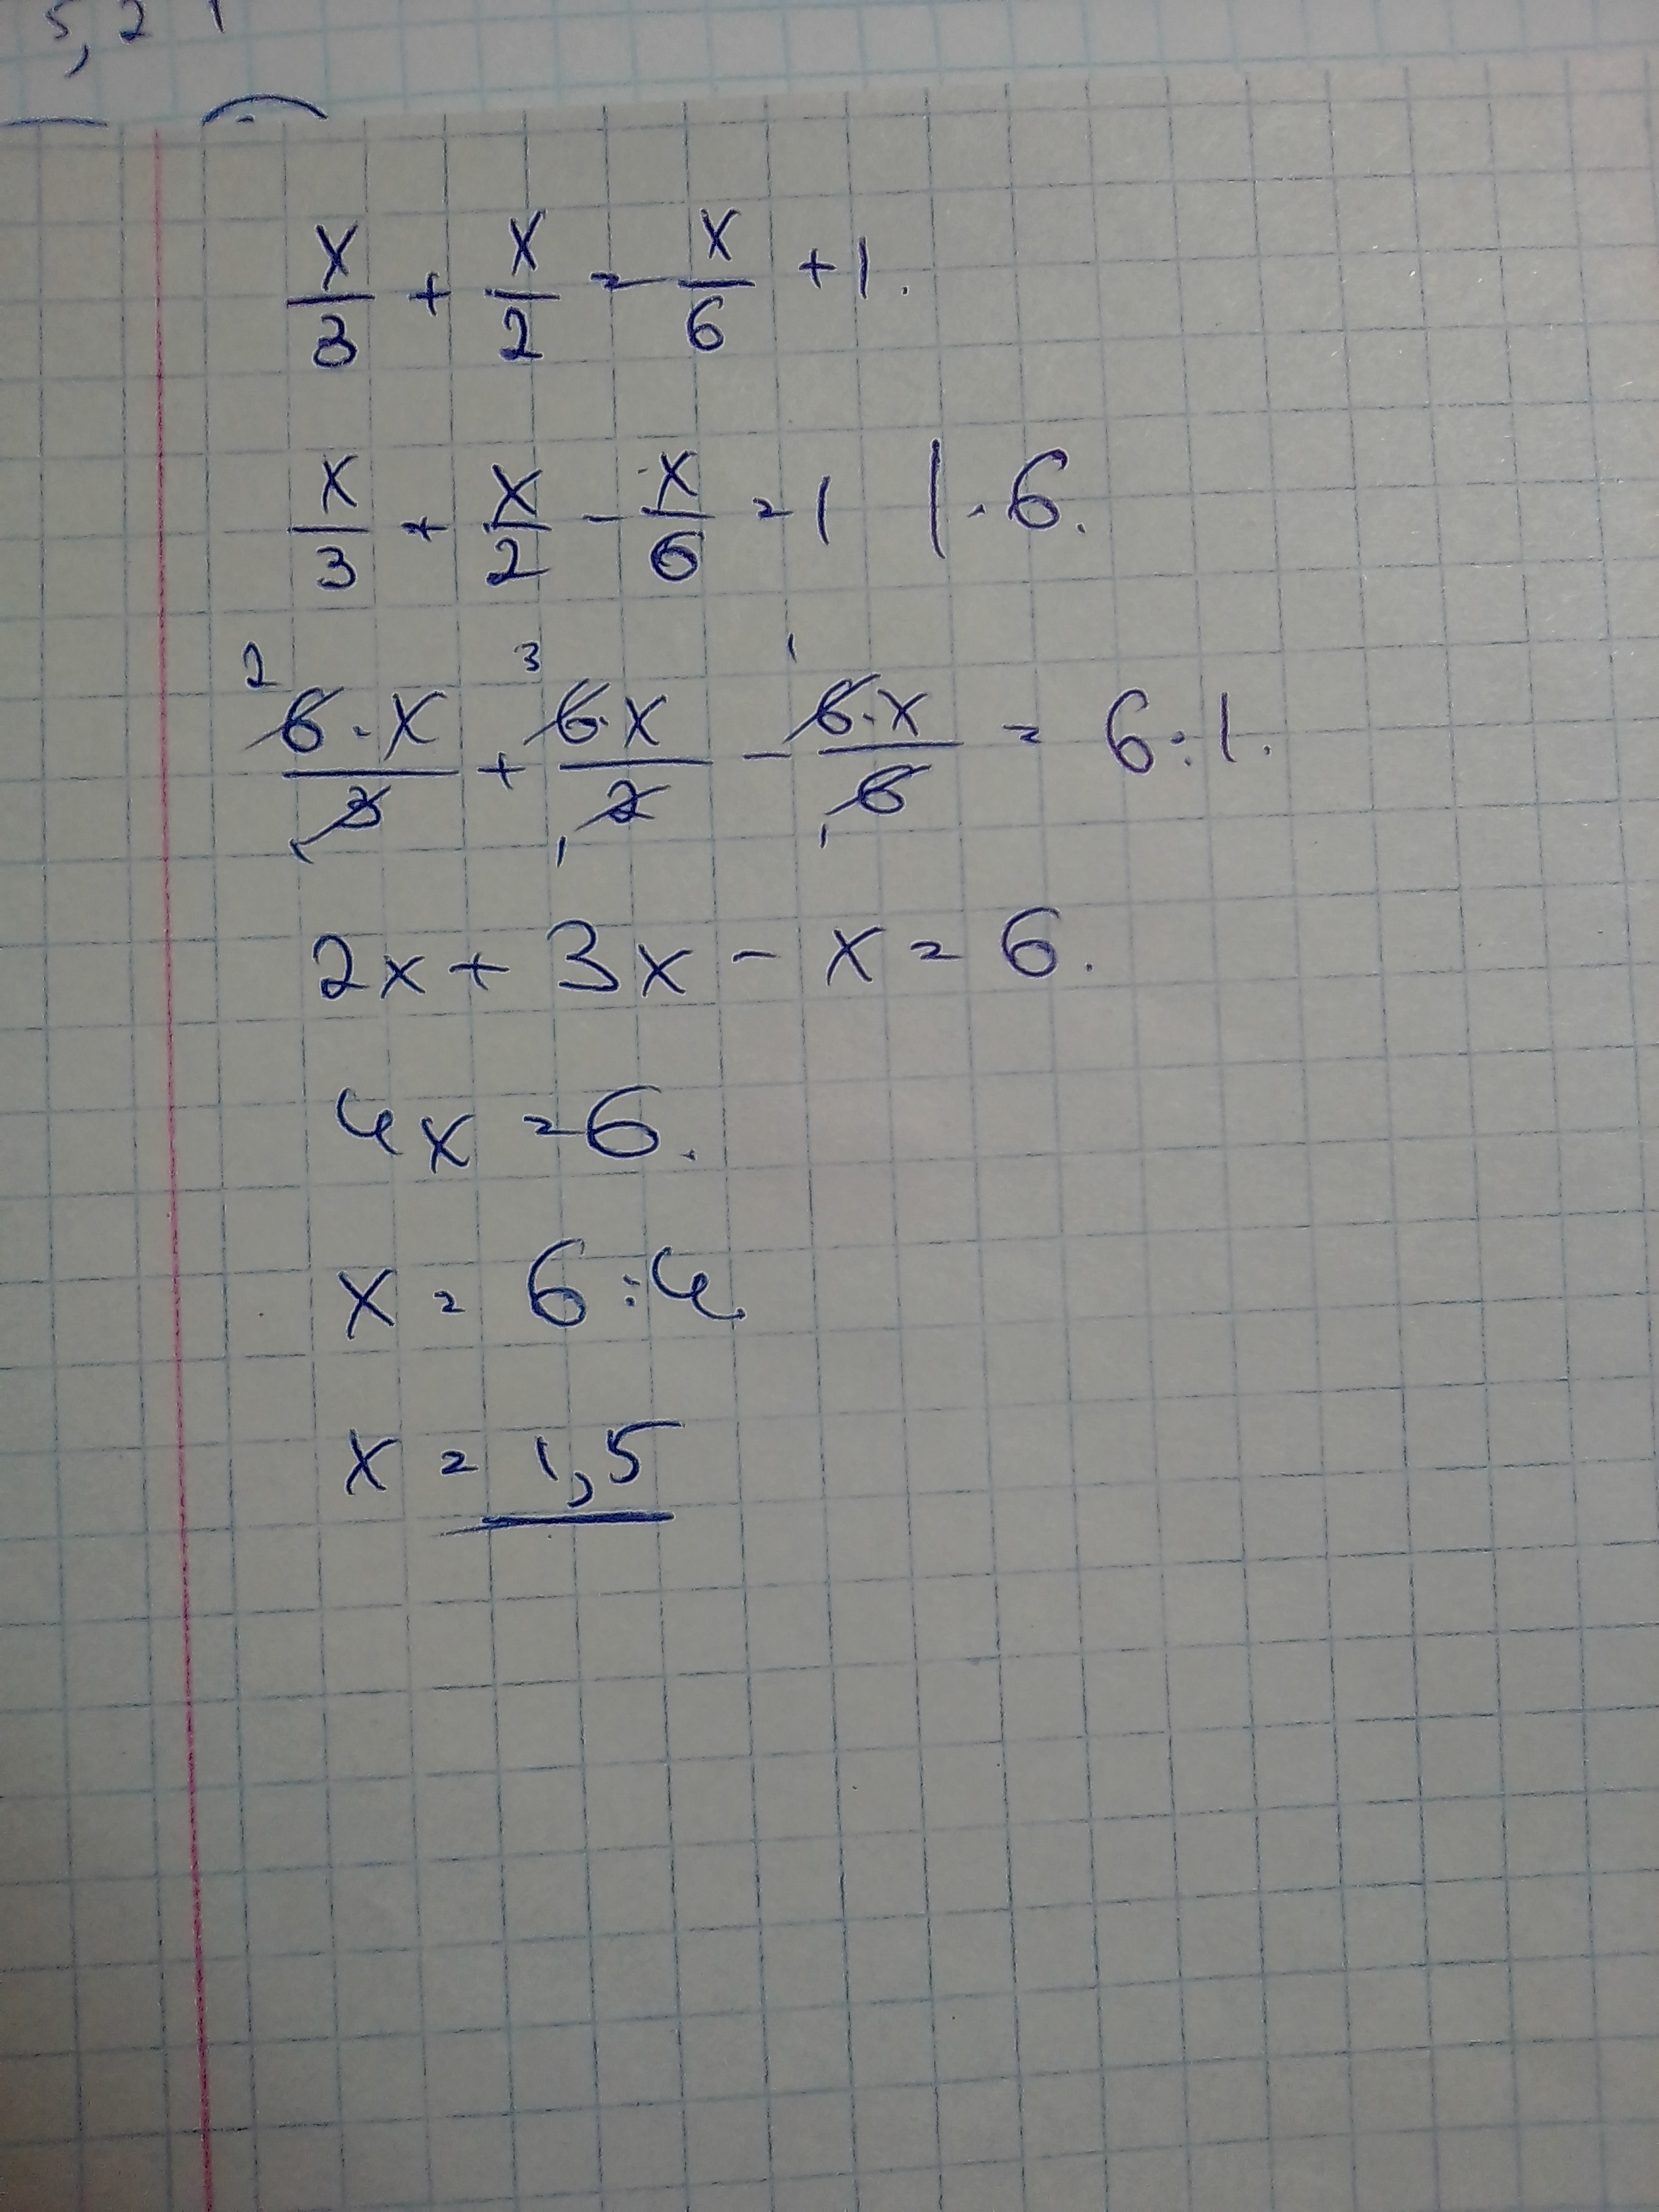 5,2
x/3 + x/2 = x/6 + 1.
x/3 + x/2 - x/6 = 1 | · 6.
2 3 1
6·x/3 + 6·x/2 - 6·x/6 = 6:1.
1 1 1
2x + 3x - x = 6.
4x = 6.
x = 6:4.
x = 1,5